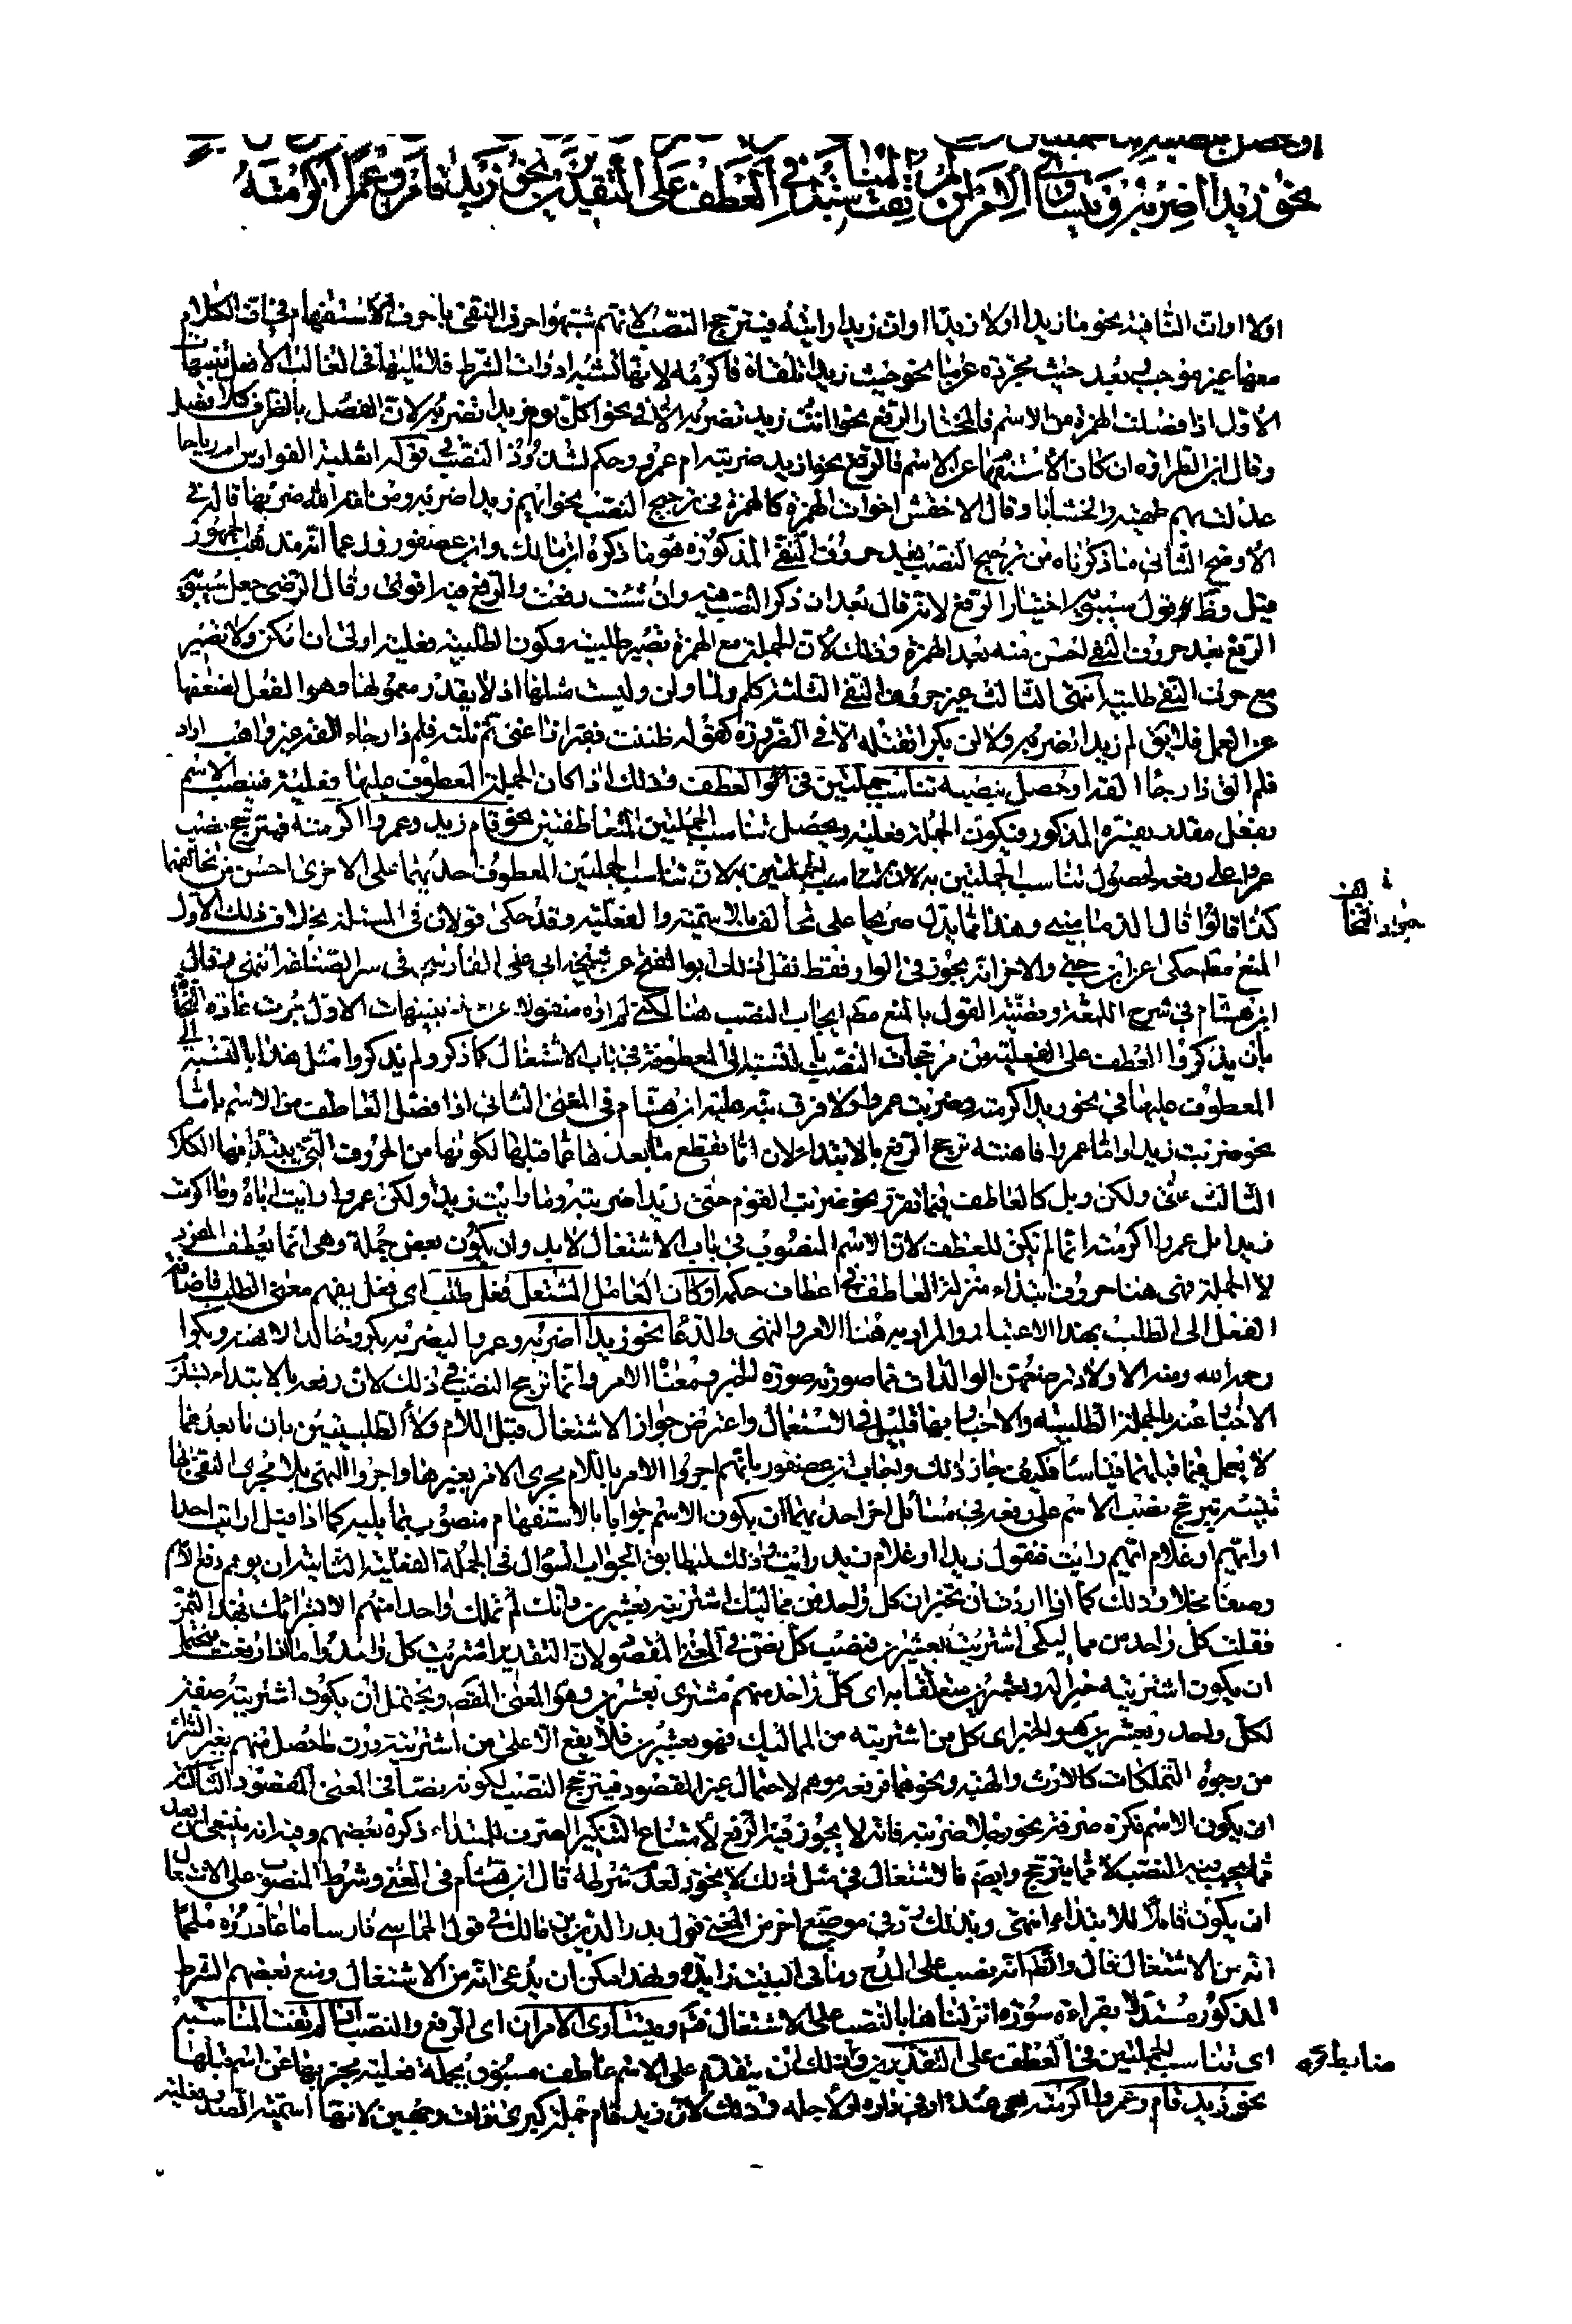 نحو زيدا اضربه ويتساوى الامران ان لم تفت المناسبة في العطف على التقديرين نحو زيد قام وعمرا اكرمته
اولا او ان النافية نحو ما زيدا او لا زيدا او ان زيدا رايته فيترجح النصب لانهم شبهوا احرف النفي باحرف الاستفهام في ان الكلام
معها غير موجب وبعد حيث مجردة عن ما نحو حيث زيدا تلقاه فاكرمه لانها تشبه ادوات الشرط فلا يليها في الغالب الا فعل تنبيهات
الاول اذا فصلت الهمزة من الاسم فالمختار الرفع نحو اانت زيد تضربه الا في نحو اكل يوم زيدا تضربه لان الفصل بالظرف كلا فصل
وقال ابن الطراوة ان كان الاستفهام عن الاسم فالرفع نحو ازيد ضربته ام عمرو وحكم بشذوذ النصب في قوله اثعلبة الفوارس ام رياحا
عدلت بهم طهية والخشابا وقال الاخفش اخوات الهمزة كالهمزة في ترجيح النصب نحو ايهم زيدا ضربه ومن امة الله ضربها قاله في
الاوضح الثاني ما ذكرناه من ترجيح النصب بعد حروف النفي المذكورة هو ما ذكره ابن مالك وابن عصفور وزعما انه مذهب الجمهور
قيل وظ قول سيبويه اختيار الرفع لانه قال بعد ان ذكر النصب فيه وان شئت رفعت والرفع فيه اقوى وقال الرضي جعل سيبويه
الرفع بعد حروف النفي احسن منه بعد الهمزة وذلك لان الجملة مع الهمزة تصير طلبية وكون الطلبية فعلية اولى ان امكن ولا تصير
مع حرف النفي طلبية انتهى الثالث غير حروف النفي الثلثة كلم ولما ولن وليست مثلها اذ لا يقدر معمولها وهو الفعل لضعفها
عن العمل فلا يق لم زيدا تضربه ولا لن بكرا تقتله الا في الضرورة كقوله ظننت فقيرا ذا غنى ثم نلته فلم ذا رجاء القه غير واهب اراد
فلم الق ذا رجاء القه او حصل بنصبه تناسب جملتين في العطف وذلك اذا كان الجملة المعطوف عليها فعلية فنصب الاسم
بفعل مقدر يفسره المذكور فيكون الجملة فعلية ويحصل تناسب الجملتين المتعاطفتين نحو قام زيد وعمروا اكرمته فيترجح نصب
عمرو على رفعه لحصول تناسب الجملتين به لان تناسب الجملتين المعطوف احديهما على الاخرى احسن من تخالفهما
كذا قالوا قال الدماميني وهذا مما يدل صريحا على تخالفهما بالاسمية والفعلية وقد حكى قولان في المسئلة بخلاف ذلك الاول
المنع مط حكى عن ابن جني والاخر انه يجوز في الواو فقط نقل ذلك ابو الفتح عن شيخه ابي علي الفارسي في سر الصناعة انتهى وقال
ابن هشام في شرح اللمحة ويقتضي القول بالمنع مط ايجاب النصب هنا لكني لم اره منقولا تنبيهات الاول جرت عادة النحاة
بان يذكروا العطف على الفعلية من مرجحات النصب بالنسبة الى المعطوفة في باب الاشتغال كما ذكر ولم يذكروا مثل هذا بالنسبة الى
المعطوف عليها في نحو زيدا اكرمته وضربت عمروا ولا فرق نبه عليه ابن هشام في المغني الثاني اذا فصل العاطف من الاسم باما
نحو ضربت زيدا واما عمروا فاهنته ترجح الرفع بالابتداء لان اما تقطع ما بعدها عما قبلها لكونها من الحروف التي يبتدأ بها الكلام
الثالث حتى ولكن وبل كالعاطف فيما تقرر نحو ضربت القوم حتى زيدا ضربته وما رايت زيدا ولكن عمروا رايت اباه وما اكرمت
زيدا بل عمروا اكرمته وانما لم يكن للعطف لان الاسم المنصوب في باب الاشتغال لا بد وان يكون بعض جملة وهي انما يعطف المفرد
لا الجملة فهي هنا حروف ابتداء منزلة العاطف في اعطاف حكمه او كان العامل المشتغل فعل طلب اي فعل يفهم معنى الطلب فاضافة
الفعل الى الطلب بهذا الاعتبار والمراد به هنا الامر والنهي والدعا نحو زيدا اضربه وعمروا ليضربه بكر وخالدا لا تهنه وبكرا
رحمه الله ومنه الاولاد ترضعهن الوالدات مما صورته صورة الخبر ومعناه الامر وانما ترجح النصب في ذلك لان رفعه بالابتداء يستلزم
الاخبار عنه بالجملة الطلبية والاخبار بها قليل في الاستعمال واعترض جواز الاشتغال قبل اللام ولا الطلبيتين بان ما بعدهما
لا يعمل فيما قبلهما قياسا فكيف جاز ذلك واجاب ابن عصفور بانهم اجروا الامر باللام مجرى الامر بغيرها واجروا النهي بلا مجرى النفي بها
تنبيه يترجح نصب الاسم على رفعه في مسائل اخر احديها ان يكون الاسم جوابا بالاستفهام منصوب بما يليه كما اذا قيل ارايت احدا
او ايهم او غلام ايهم رايت فتقول زيدا او غلام زيد رايته وذلك ليطابق الجواب السؤال في الجملة الفعلية الثانية ان يوهم رفع الاسم
وصفا مخلا وذلك كما اذا اردت ان تخبر ان كل واحد من مماليك اشتريته بعشرين وانك لم تملك واحدا منهم الا بشرائك بهذا الثمن
فقلت كل واحد من مماليكي اشتريته بعشرين فنصب كل نص في المعنى المقصود لان التقدير اشتريت كل واحد واما اذا رفعت فيحتمل
ان يكون اشتريته خبرا له وبعشرين متعلقا به اي كل واحد منهم مشترى بعشرين وهو المعنى المقص ويحتمل ان يكون اشتريته صفة
لكل واحد وبعشرين هو الخبر اي كل من اشتريته من المماليك فهو بعشرين فلا يقع الا على من اشتريته دون ما حصل منهم بغير الشراء
من وجوه التملكات كالارث والهبة ونحوهما فرفعه موهم لاحتمال غير المقصود فيترجح النصب لكونه نصا في المعنى المقصود الثالثة
ان يكون الاسم نكرة صرفة نحو رجلا ضربته فانه لا يجوز فيه الرفع لامتناع التنكير الصرف للمبتداء ذكره بعضهم وفيه انه ينبغي ان يعد
مما يجب فيه النصب لا مما يترجح وايضم فالاشتغال في مثل ذلك لا يجوز لعدم شرطه قال ابن هشام في المغني وشرط المنصوب على الاشتغال
ان يكون قابلا للابتداء انتهى وبذلك رد في موضع اخر من المغني قول بدر الدين بن مالك في قول الحماسي فارسا ما غادروه ملحما
انه من الاشتغال قال والظ انه نصب على المدح وما في البيت زايدة ولهذا امكن ان يدعى انه من الاشتغال ومنع بعضهم الشرط
المذكور مستدلا بقراءة سورة انزلناها بالنصب على الاشتغال فتم ويتساوى الامران اي الرفع والنصب اذا لم تفت المناسبة
اي تناسب الجملتين في العطف على التقديرين وذلك ان يتقدم على الاسم عاطف مسبوق بجملة فعلية مخبر بها عن اسم قبلها
نحو زيد قام وعمروا اكرمته في داره او لاجله وذلك لان زيد قام جملة كبرى ذات وجهين لانها اسمية الصدر فعلية